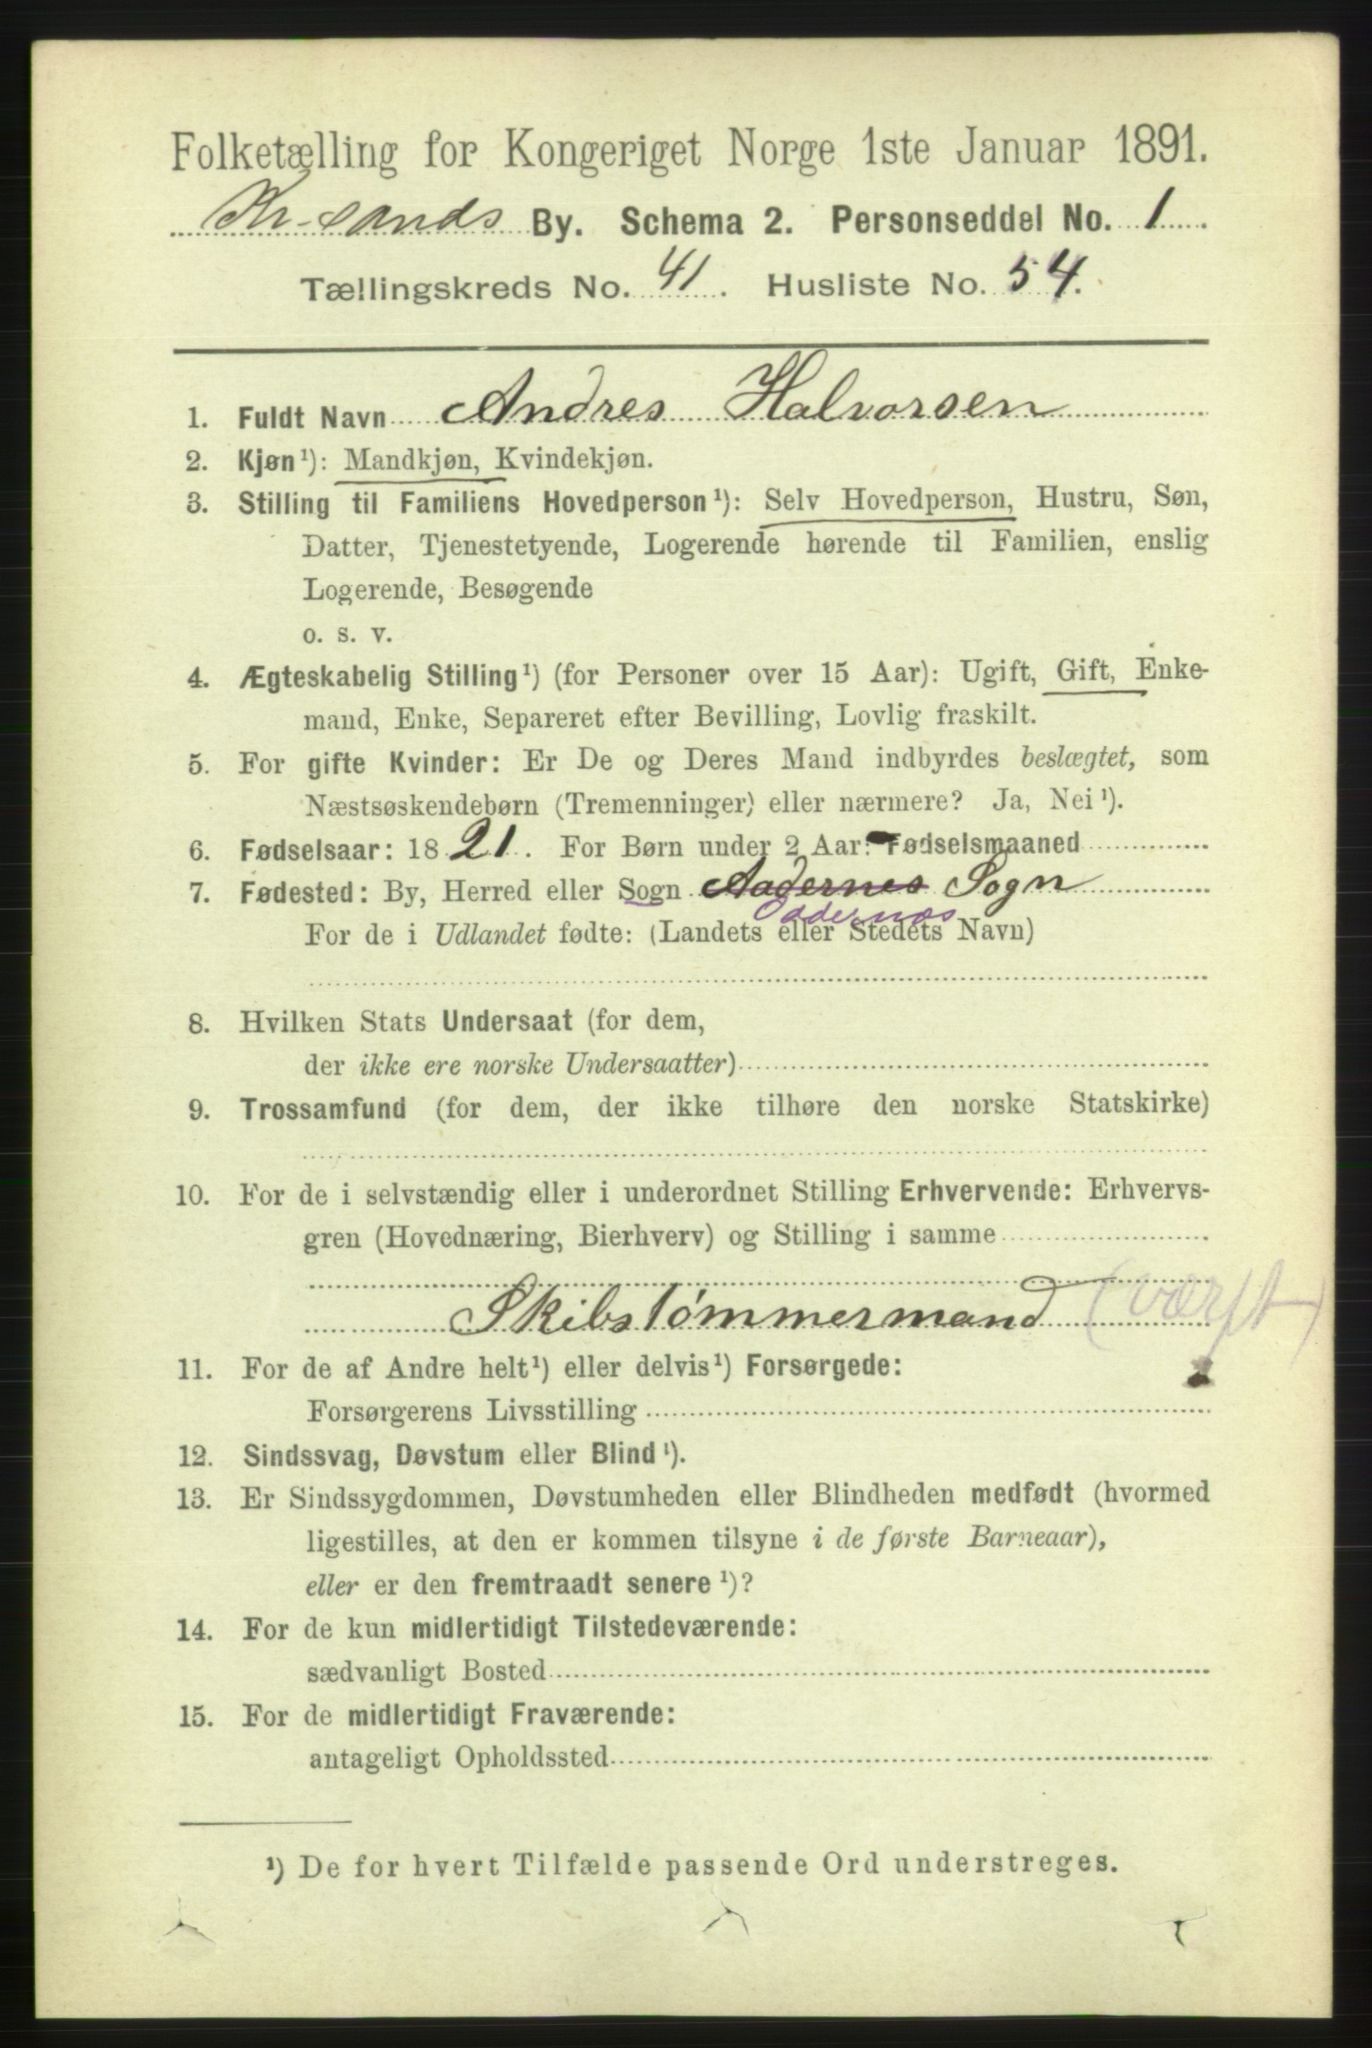 Folketælling for Kongeriget Norge 1ste Januar 1891.
Kr-sands By. Schema 2. Personseddel No. 1
Tællingskreds No. 41. Husliste No. 54.
1. Fuldt Navn Andres Halvorsen
2. Kjøn¹): Mandkjøn, Kvindekjøn.
3. Stilling til Familiens Hovedperson¹): Selv Hovedperson, Hustru, Søn,
Datter, Tjenestetyende, Logerende hørende til Familien, enslig
Logerende, Besøgende
o. s. v.
4. Ægteskabelig Stilling¹) (for Personer over 15 Aar): Ugift, Gift, Enke-
mand, Enke, Separeret efter Bevilling, Lovlig fraskilt.
5. For gifte Kvinder: Er De og Deres Mand indbyrdes beslægtet, som
Næstsøskendebørn (Tremenninger) eller nærmere? Ja, Nei¹).
6. Fødselsaar: 1821. For Børn under 2 Aar: Fødselsmaaned
7. Fødested: By, Herred eller Sogn Aadernes Sogn
Oddernæs
For de i Udlandet fødte: (Landets eller Stedets Navn)
8. Hvilken Stats Undersaat (for dem,
der ikke ere norske Undersaatter)
9. Trossamfund (for dem, der ikke tilhøre den norske Statskirke)
10. For de i selvstændig eller i underordnet Stilling Erhvervende: Erhvervs-
gren (Hovednæring, Bierhverv) og Stilling i samme
Skibstømmermand (værft)
11. For de af Andre helt¹) eller delvis¹) Forsørgede:
Forsørgerens Livsstilling
12. Sindssvag, Døvstum eller Blind¹).
13. Er Sindssygdommen, Døvstumheden eller Blindheden medfødt (hvormed
ligestilles, at den er kommen tilsyne i de første Barneaar),
eller er den fremtraadt senere¹)?
14. For de kun midlertidigt Tilstedeværende:
sædvanligt Bosted
15. For de midlertidigt Fraværende:
antageligt Opholdssted
¹) De for hvert Tilfælde passende Ord understreges.